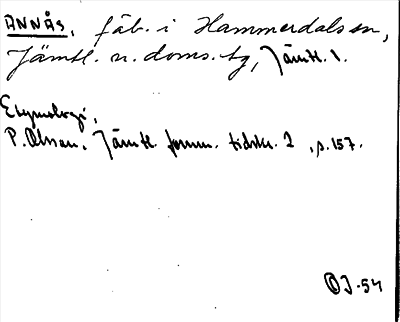 ANNÅS, fäb. i Hammerdals sn,
Jämtl. n. doms. tg, Jämtl. l.
Etymologi,
P. Olsson, Jämtl. fornm. tidskr. 2, s. 157.
OJ-54